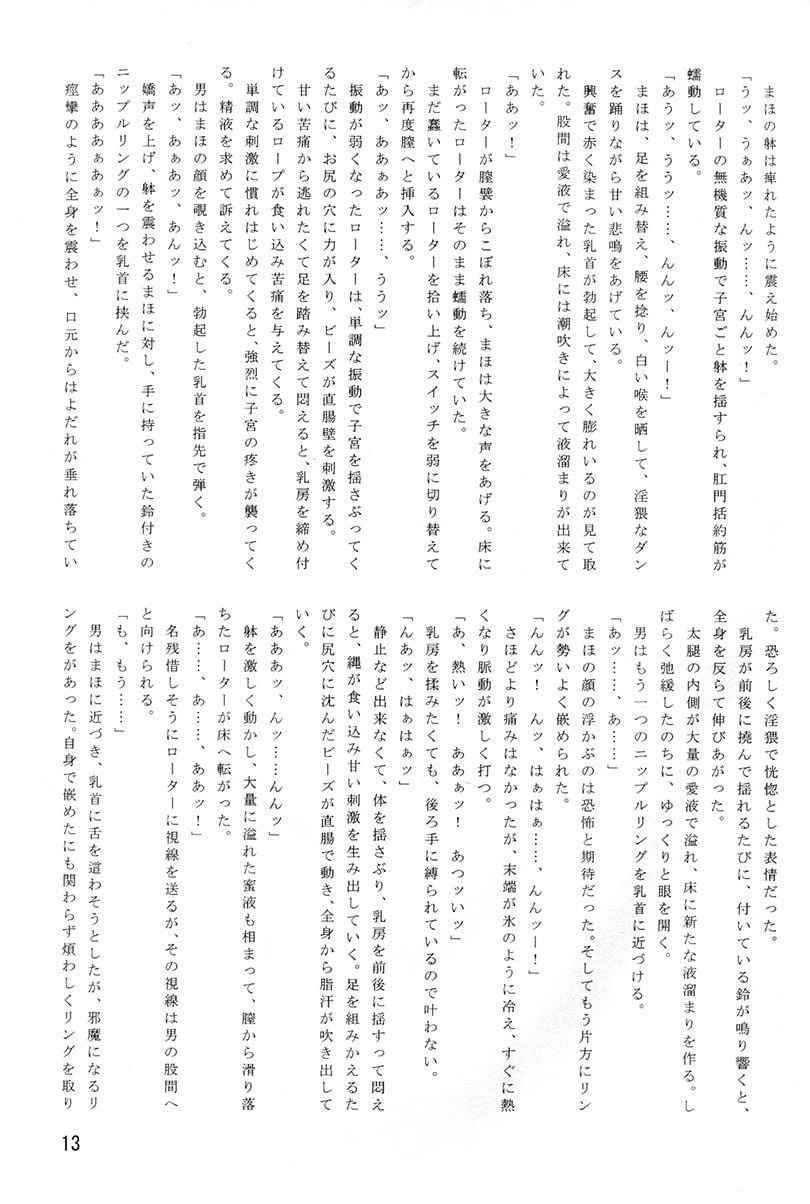 まほの躰は痺れたように震え始めた。
「うッ、うぁあッ、んッ……、んんッ！」
ローターの無機質な振動で子宮ごと躰を揺すられ、肛門括約筋が
蠕動している。
「あうッ、ううッ……、んんッ、んッー！」
まほは、足を組み替え、腰を捻り、白い喉を晒して、淫猥なダン
スを踊りながら甘い悲鳴をあげている。
興奮で赤く染まった乳首が勃起して、大きく膨れいるのが見て取
れた。股間は愛液で溢れ、床には潮吹きによって液溜まりが出来て
いた。
「ああッ！」
ローターが膣襞からこぼれ落ち、まほは大きな声をあげる。床に
転がったローターはそのまま蠕動を続けていた。
まだ蠢いているローターを拾い上げ、スイッチを弱に切り替えて
から再度膣へと挿入する。
「あッ、ああぁあッ……、ううッ」
振動が弱くなったローターは、単調な振動で子宮を揺さぶってく
るたびに、お尻の穴に力が入り、ビーズが直腸壁を刺激する。
甘い苦痛から逃れたくて足を踏み替えて悶えると、乳房を締め付
けているロープが食い込み苦痛を与えてくる。
単調な刺激に慣れはじめてくると、強烈に子宮の疼きが襲ってく
る。精液を求めて訴えてくる。
男はまほの顔を覗き込むと、勃起した乳首を指先で弾く。
「あッ、あぁあッ、あんッ！」
嬌声を上げ、躰を震わせるまほに対し、手に持っていた鈴付きの
ニップルリングの一つを乳首に挟んだ。
「ああああぁあぁッ！」
痙攣のように全身を震わせ、口元からはよだれが垂れ落ちてい
た。恐ろしく淫猥で恍惚とした表情だった。
乳房が前後に撓んで揺れるたびに、付いている鈴が鳴り響くと、
全身を反らて伸びあがった。
太腿の内側が大量の愛液で溢れ、床に新たな液溜まりを作る。し
ばらく弛緩したのちに、ゆっくりと眼を開く。
男はもう一つのニップルリングを乳首に近づける。
「あッ……、あ……」
まほの顔の浮かぶのは恐怖と期待だった。そしてもう片方にリン
グが勢いよく嵌められた。
「んんッ！　んッ、はぁはぁ……、んんッー！」
さほどより痛みはなかったが、末端が氷のように冷え、すぐに熱
くなり脈動が激しく打つ。
「あ、熱いッ！　ああぁッ！　あつッいッ」
乳房を揉みたくても、後ろ手に縛られているので叶わない。
「んあッ、はぁはぁッ」
静止など出来なくて、体を揺さぶり、乳房を前後に揺すって悶え
ると、縄が食い込み甘い刺激を生み出していく。足を組みかえるた
びに尻穴に沈んだビーズが直腸で動き、全身から脂汗が吹き出して
いく。
「あああッ、んッ……んんッ」
躰を激しく動かし、大量に溢れた蜜液も相まって、膣から滑り落
ちたローターが床へ転がった。
「あ……、あ……、ああッ！」
名残惜しそうにローターに視線を送るが、その視線は男の股間へ
と向けられる。
「も、もう……」
男はまほに近づき、乳首に舌を這わそうとしたが、邪魔になるリ
ングをがあった。自身で嵌めたにも関わらず煩わしくリングを取り
13